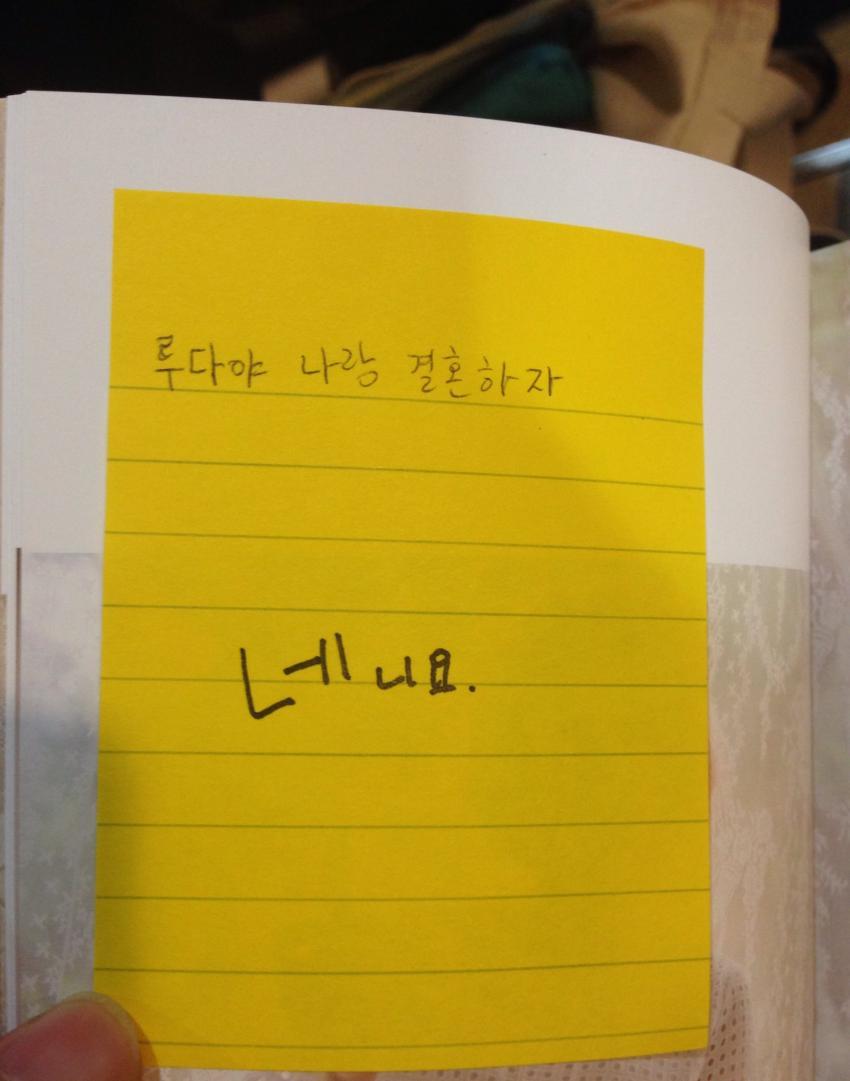 루다야 나랑 결혼하자
네니요.